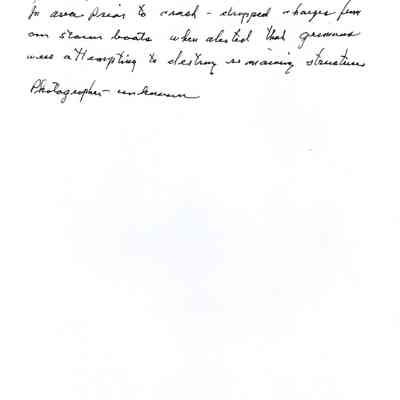 In area prior to crash - dropped charges from
our storm boats when alerted that germans
were attempting to destroy remaining structure
Photographer - unknown